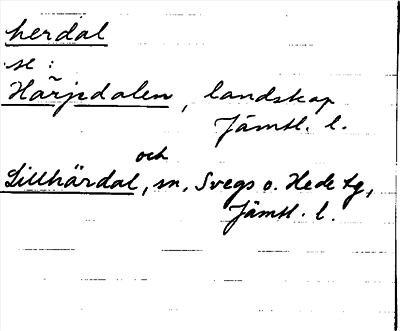 herdal
se:
Härjedalen, landskap
Jämtl. l.
och
Lillhärdal, sn, Svegs o. Hede tg,
Jämtl. l.